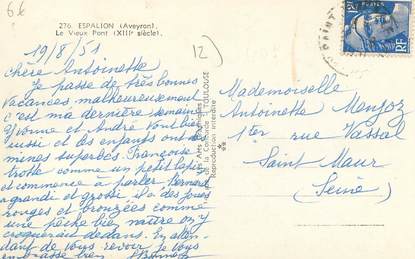 6€
276. ESPALION (Aveyron).
Le Vieux Pont (XIIIe siècle).
12
19/8/51
Chère Antoinette
Je passe de très bonnes
vacances malheureusement
c'est ma dernière semaine
Yvonne et André vont bien
aussi et les enfants ont des
mines superbes. Françoise
trotte comme un petit lapin
et commence à parler. Bernard
a grandi et grossi il a des joues
rouges et bronzées comme
une pêche bien mûre on y
croquerait dedans. En atten
dant de vous revoir je vous
embrasse bien
TOULOUSE
Reproduction interdite
Mademoiselle
Antoinette
1ter rue Vassal
Saint Maur
(Seine)
POSTES